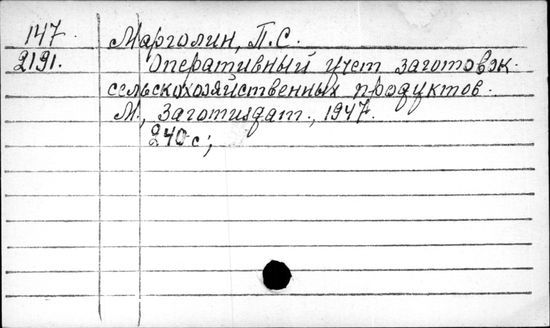 147. Марголин, П.С.
2191. Оперативный учет заготовок
сельскохозяйственных продуктов.
М., Заготиздат., 1947.
240 с;